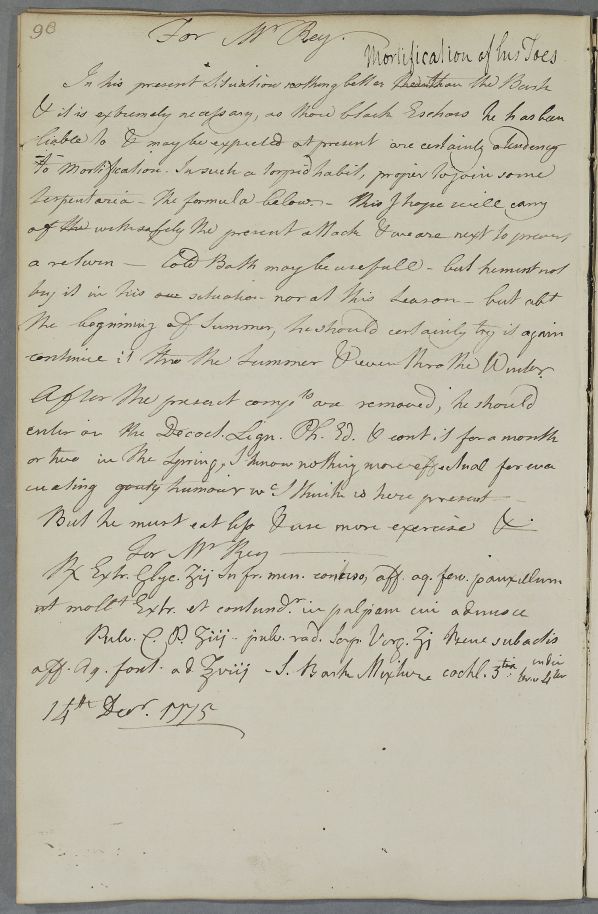 98
For Mr Rey.
Mortification of his Toes
In his present situation nothing better than the Bark
& it is extremely necessary, as those black Eschars he has been
liable to & may be expected at present are certainly a tendency
to Mortification. In such a torpid habit, proper to join some
Serpentaria - the formula below. - this I hope will carry
off with safety the present attack & we are next to prevent
a return — Cold Bath may be usefull - but he must not
try it in his situation nor at this Season - but abt
the beginning of Summer, he should certainly try it again
continue it thro the Summer & even thro the Winter.
After the present compts are removed, he should
enter on the Decoct. Lign. Ph. Ed. & cont. it for a month
or two in the Spring, I know nothing more effectual for eva
cuating gouty humour wc I think is here present —
But he must eat less & use more exercise &
For Mr Rey
℞ Extr. Glyc. ʒij In fr. min. conciso, aff. aq. ferv. pauxillum
ut mollt Extr. et contundr. in pulpam cui admisce
Pulv. C. P. ʒiij - pulv. rad. Serp. Virg. ʒj Bene subactis
aff. Aq. font. ad ℥viij - S. Bark Mixture cochl. 3tia
in die
ter v 4ter
14th Decr. 1775